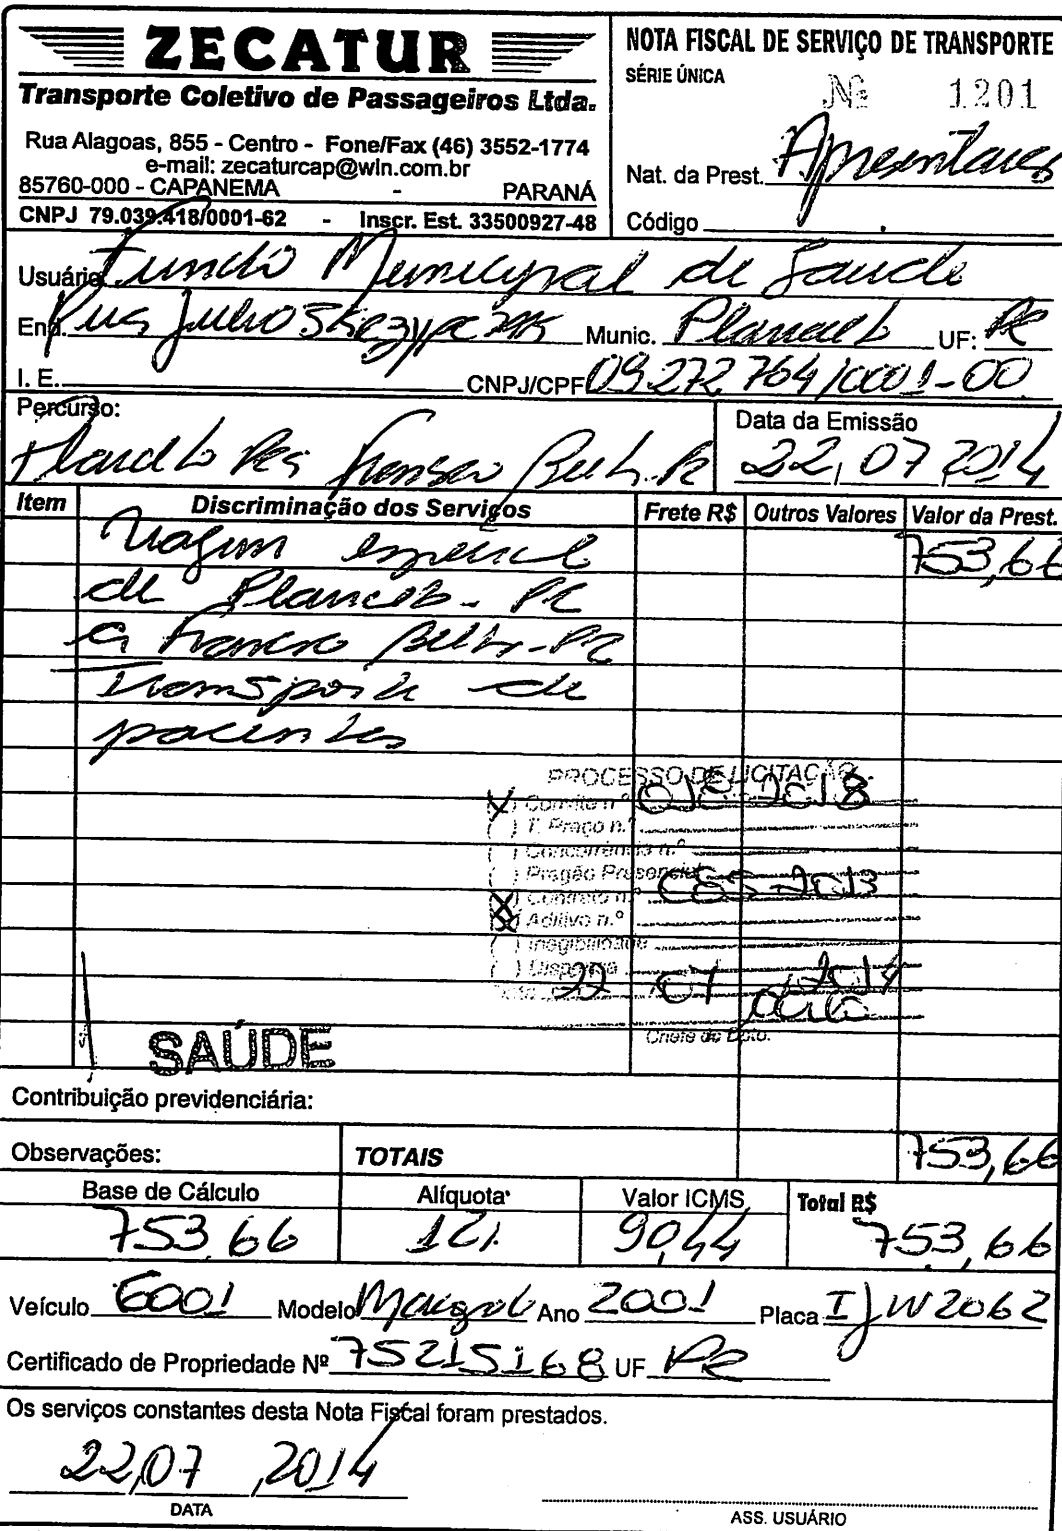 ZECATUR
Transporte Coletivo de Passageiros Ltda.
Rua Alagoas, 855 - Centro - Fone/Fax (46) 3552-1774
e-mail: zecaturcap@wln.com.br
85760-000 - CAPANEMA - PARANÁ
CNPJ 79.039.418/0001-62 - Inscr. Est. 33500927-48
NOTA FISCAL DE SERVIÇO DE TRANSPORTE
SÉRIE ÚNICA
Nº 1201
Nat. da Prest.
Código
Usuário Fundo Municipal de Saude
End. Rua Julho Munic. Planalto UF: Pr
I. E. CNPJ/CPF 09.272.764/0001-00
Percurso:
Planalto Pr Franseo Belt. Pr
Data da Emissão
22, 07 2014
Item Discriminação dos Serviços Frete R$ Outros Valores Valor da Prest.
Viagem especial 753,66
de Planalto - Pr
a Francisco Beltr - Pr
Transporte de
pacientes
PROCESSO DE LICITAÇÃO
(X) Convite n.º
( ) T. Preço n.º
( ) Concorrência n.º
( ) Pregão Presencial
(X) Contrato n.º 2013
(X) Aditivo n.º
( ) Inegibilidade
( ) Dispensa
22 07 2014
Chefe do Dpto.
SAÚDE
Contribuição previdenciária:
Observações: TOTAIS 753,66
Base de Cálculo Alíquota Valor ICMS Total R$
753,66 12% 90,44 753,66
Veículo 6001 Modelo Ano 2001 Placa IJW2062
Certificado de Propriedade Nº 75215168 UF PR
Os serviços constantes desta Nota Fiscal foram prestados.
22,07,2014
DATA
ASS. USUÁRIO